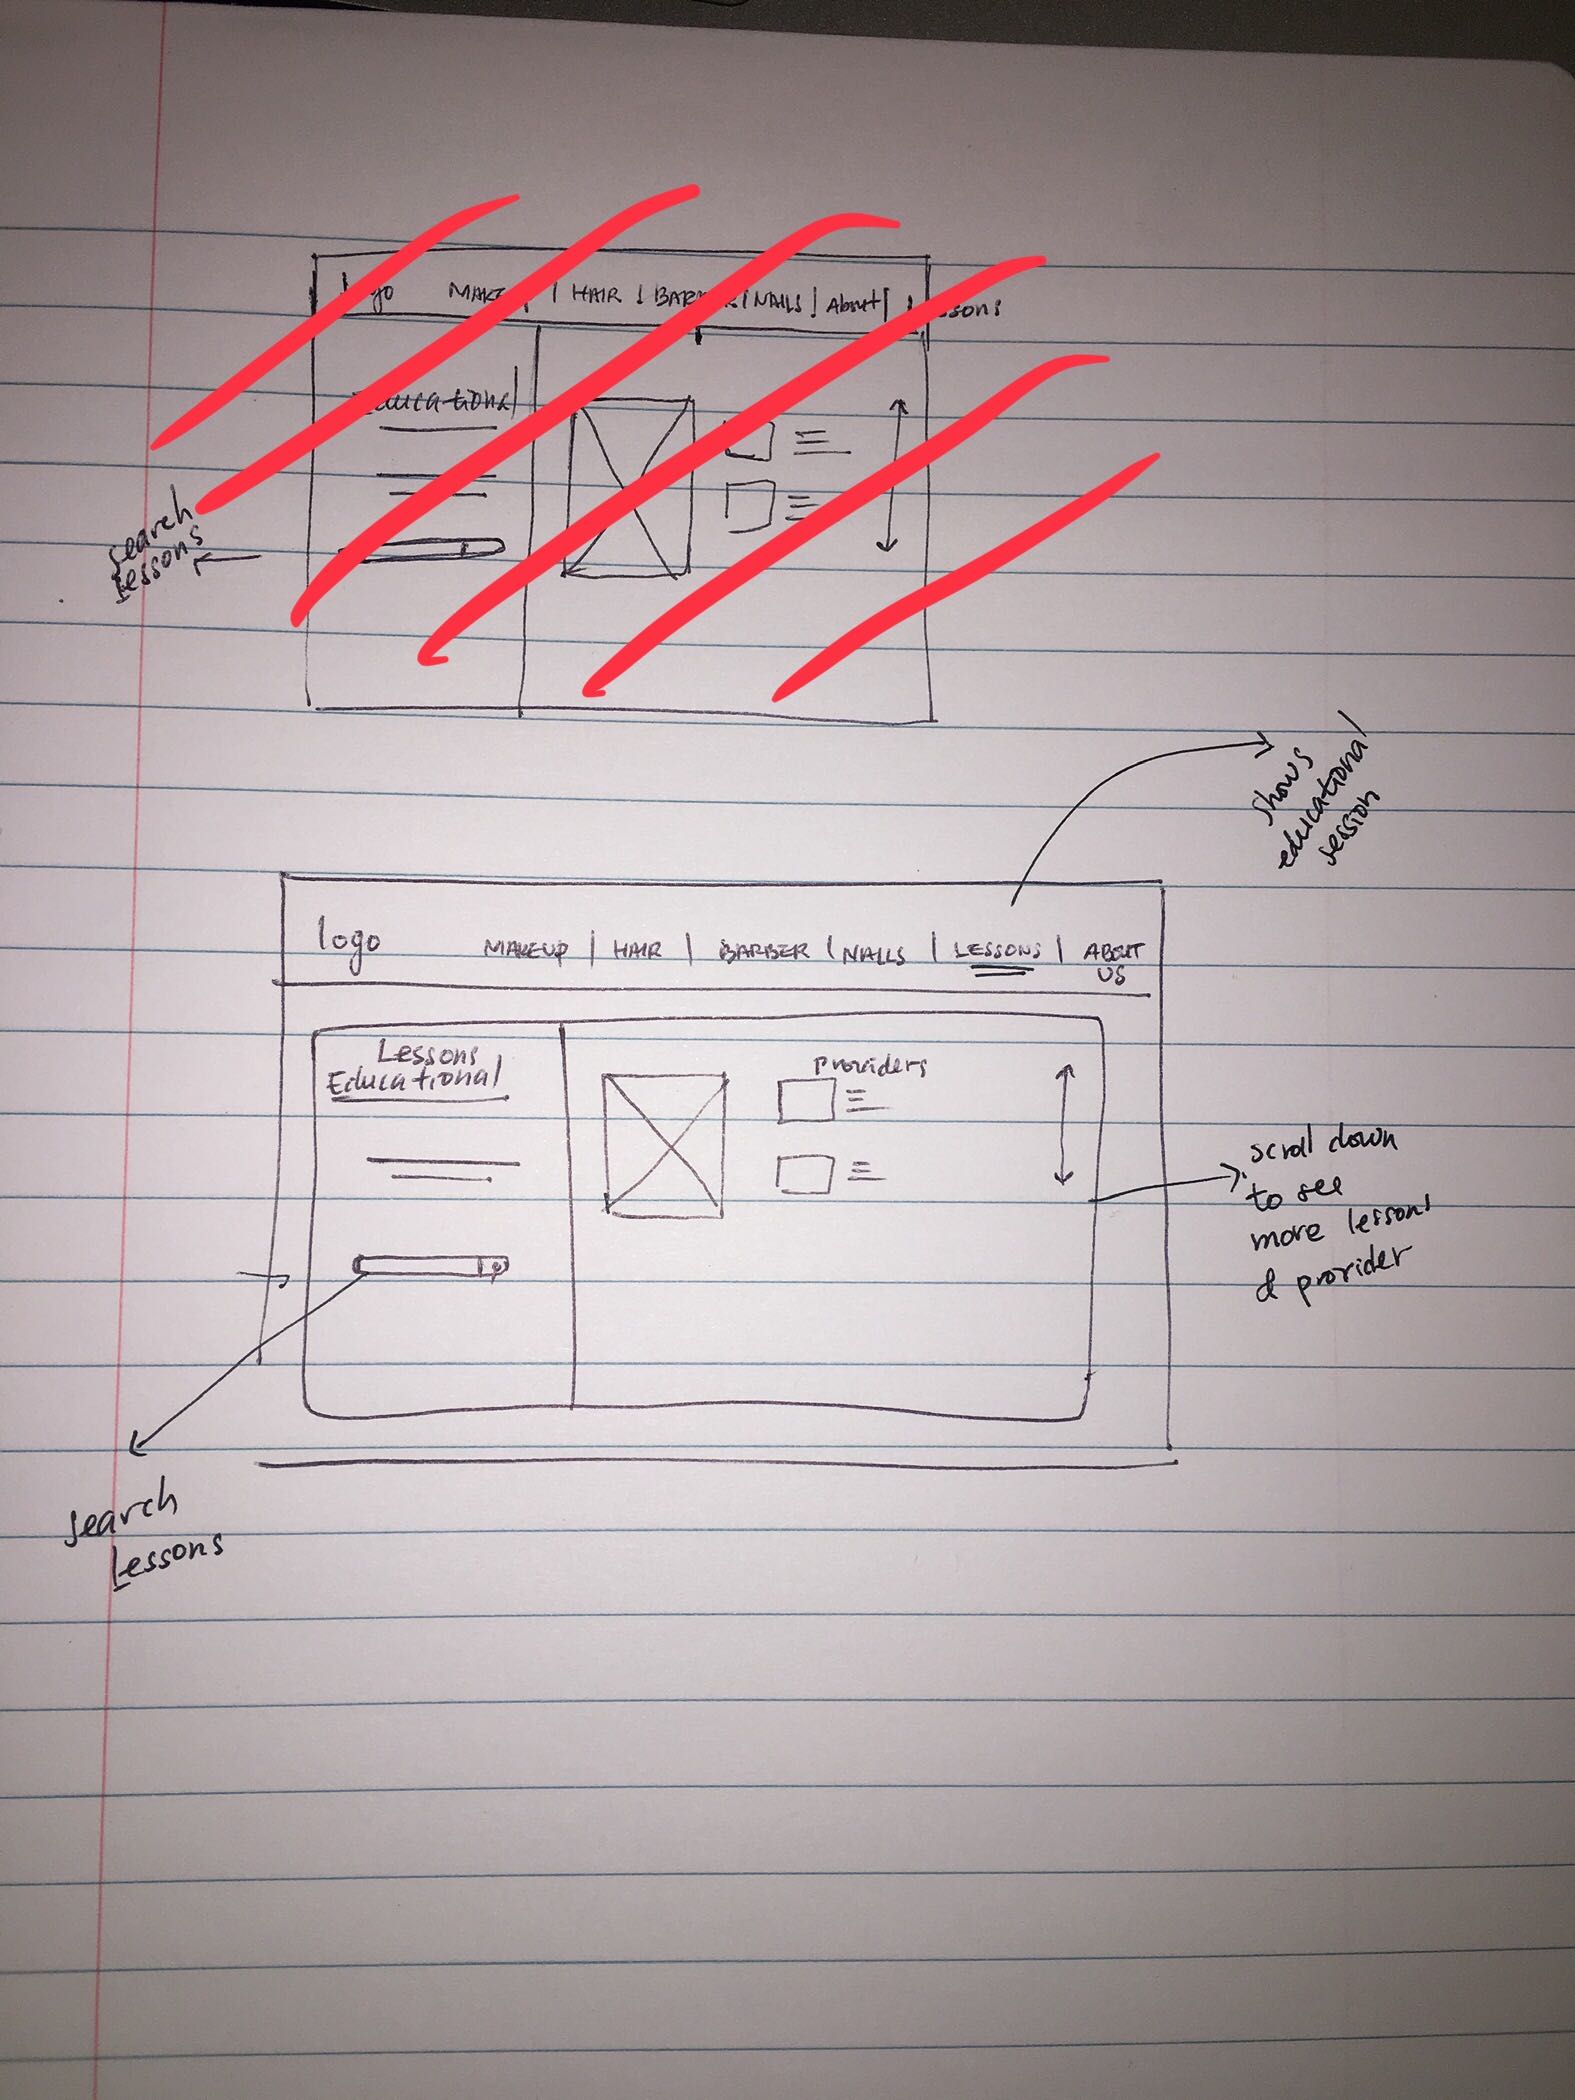 logo MAKEUP | HAIR | BARBER | NAILS | About |
Educational
Search
Lessons
shows
educational
session
logo MAKEUP | HAIR | BARBER | NAILS | LESSONS | ABOUT
US
Lessons
Educational
Providers
scroll down
to see
more lessons
& provider
Search
Lessons